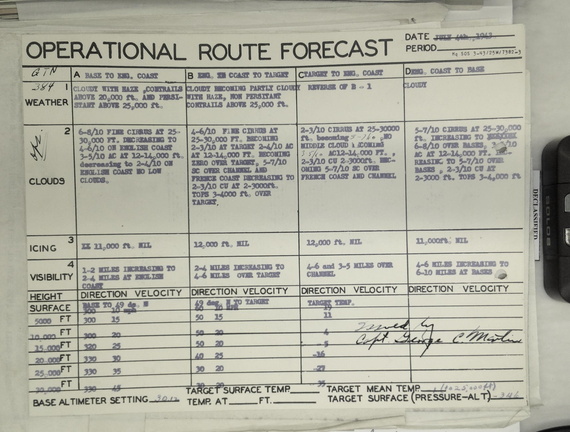 OPERATIONAL ROUTE FORECAST
DATE JULY 4th, 1943
PERIOD
A BASE TO ENG. COAST
B ENG. TH COAST TO TARGET
C TARGET TO ENG. COAST
D ENG. COAST TO BASE
384
1
WEATHER
CLOUDY WITH HAZE, CONTRAILS
ABOVE 20,000 ft. AND PERSI-
STANT ABOVE 25,000 ft.
CLOUDY BECOMING PARTLY CLOUDY
WITH HAZE, NON PERSITANT
CONTRAILS ABOVE 25,000 ft.
REVERSE OF B - 1
CLOUDY
2
CLOUDS
6-8/10 FINE CIRRUS AT 25-
30,000 FT. DECREASING TO
4-6/10 ON ENGLISH COAST
3-5/10 AC AT 12-14,000 ft.
decreasing to 2-4/10 ON
ENGLISH COAST NO LOW
CLOUDS.
4-6/10 FINE CIRRUS AT
25-30,000 FT. BECOMING
2-3/10 AT TARGET 2-4/10 AC
AT 12-14,000 FT. BECOMING
ZERO OVER TARGET, 5-7/10
SC OVER CHANNEL AND
FRENCH COAST DECREASING TO
2-3/10 CU AT 2-3000ft.
TOPS 3-4000 ft. OVER
TARGET.
2-3/10 CIRRUS AT 25-30000
ft. becoming NO
MIDDLE CLOUD BECOMING
AC 12-14,000 FT.,
2-3/10 CU 2-3000 FT. BEC-
OMING 5-7/10 SC OVER
FRENCH COAST AND CHANNEL
5-7/10 CIRRUS AT 25-30,000
ft. INCREASING TO
6-8/10 OVER BASES,
AC AT 12-14,000 FT. INC-
REASING TO 5-7/10 OVER
BASES, 2-3/10 CU AT
2-3000 FT. TOPS 3-4,000 ft
3
ICING
11,000 ft. NIL
12,000 ft. NIL
12,000 ft. NIL
11,000ft. NIL
4
VISIBILITY
1-2 MILES INCREASING TO
2-4 MILES AT ENGLISH
COAST
2-4 MILES INCREASING TO
4-6 MILES OVER TARGET
4-6 and 3-5 MILES OVER
CHANNEL
4-6 MILES INCREASING TO
6-10 MILES AT BASES
HEIGHT DIRECTION VELOCITY DIRECTION VELOCITY DIRECTION VELOCITY DIRECTION VELOCITY
BASE TO 49 deg. N 49 deg. N TO TARGET TARGET TEMP.
SURFACE 300 10 mph 10 MPH
5000 FT 300 15 50 15 11
10,000 FT 300 20 50 20 4
15,000 FT 320 25 50 20
20,000 FT 330 30 40 25 -16
25,000 FT 330 35 30 20 -27
30,000 FT 330 45
Issued by
Capt George C
BASE ALTIMETER SETTING
TARGET SURFACE TEMP.
TEMP. AT FT.
TARGET MEAN TEMP
TARGET SURFACE (PRESSURE-ALT)
DECLASSIFIED